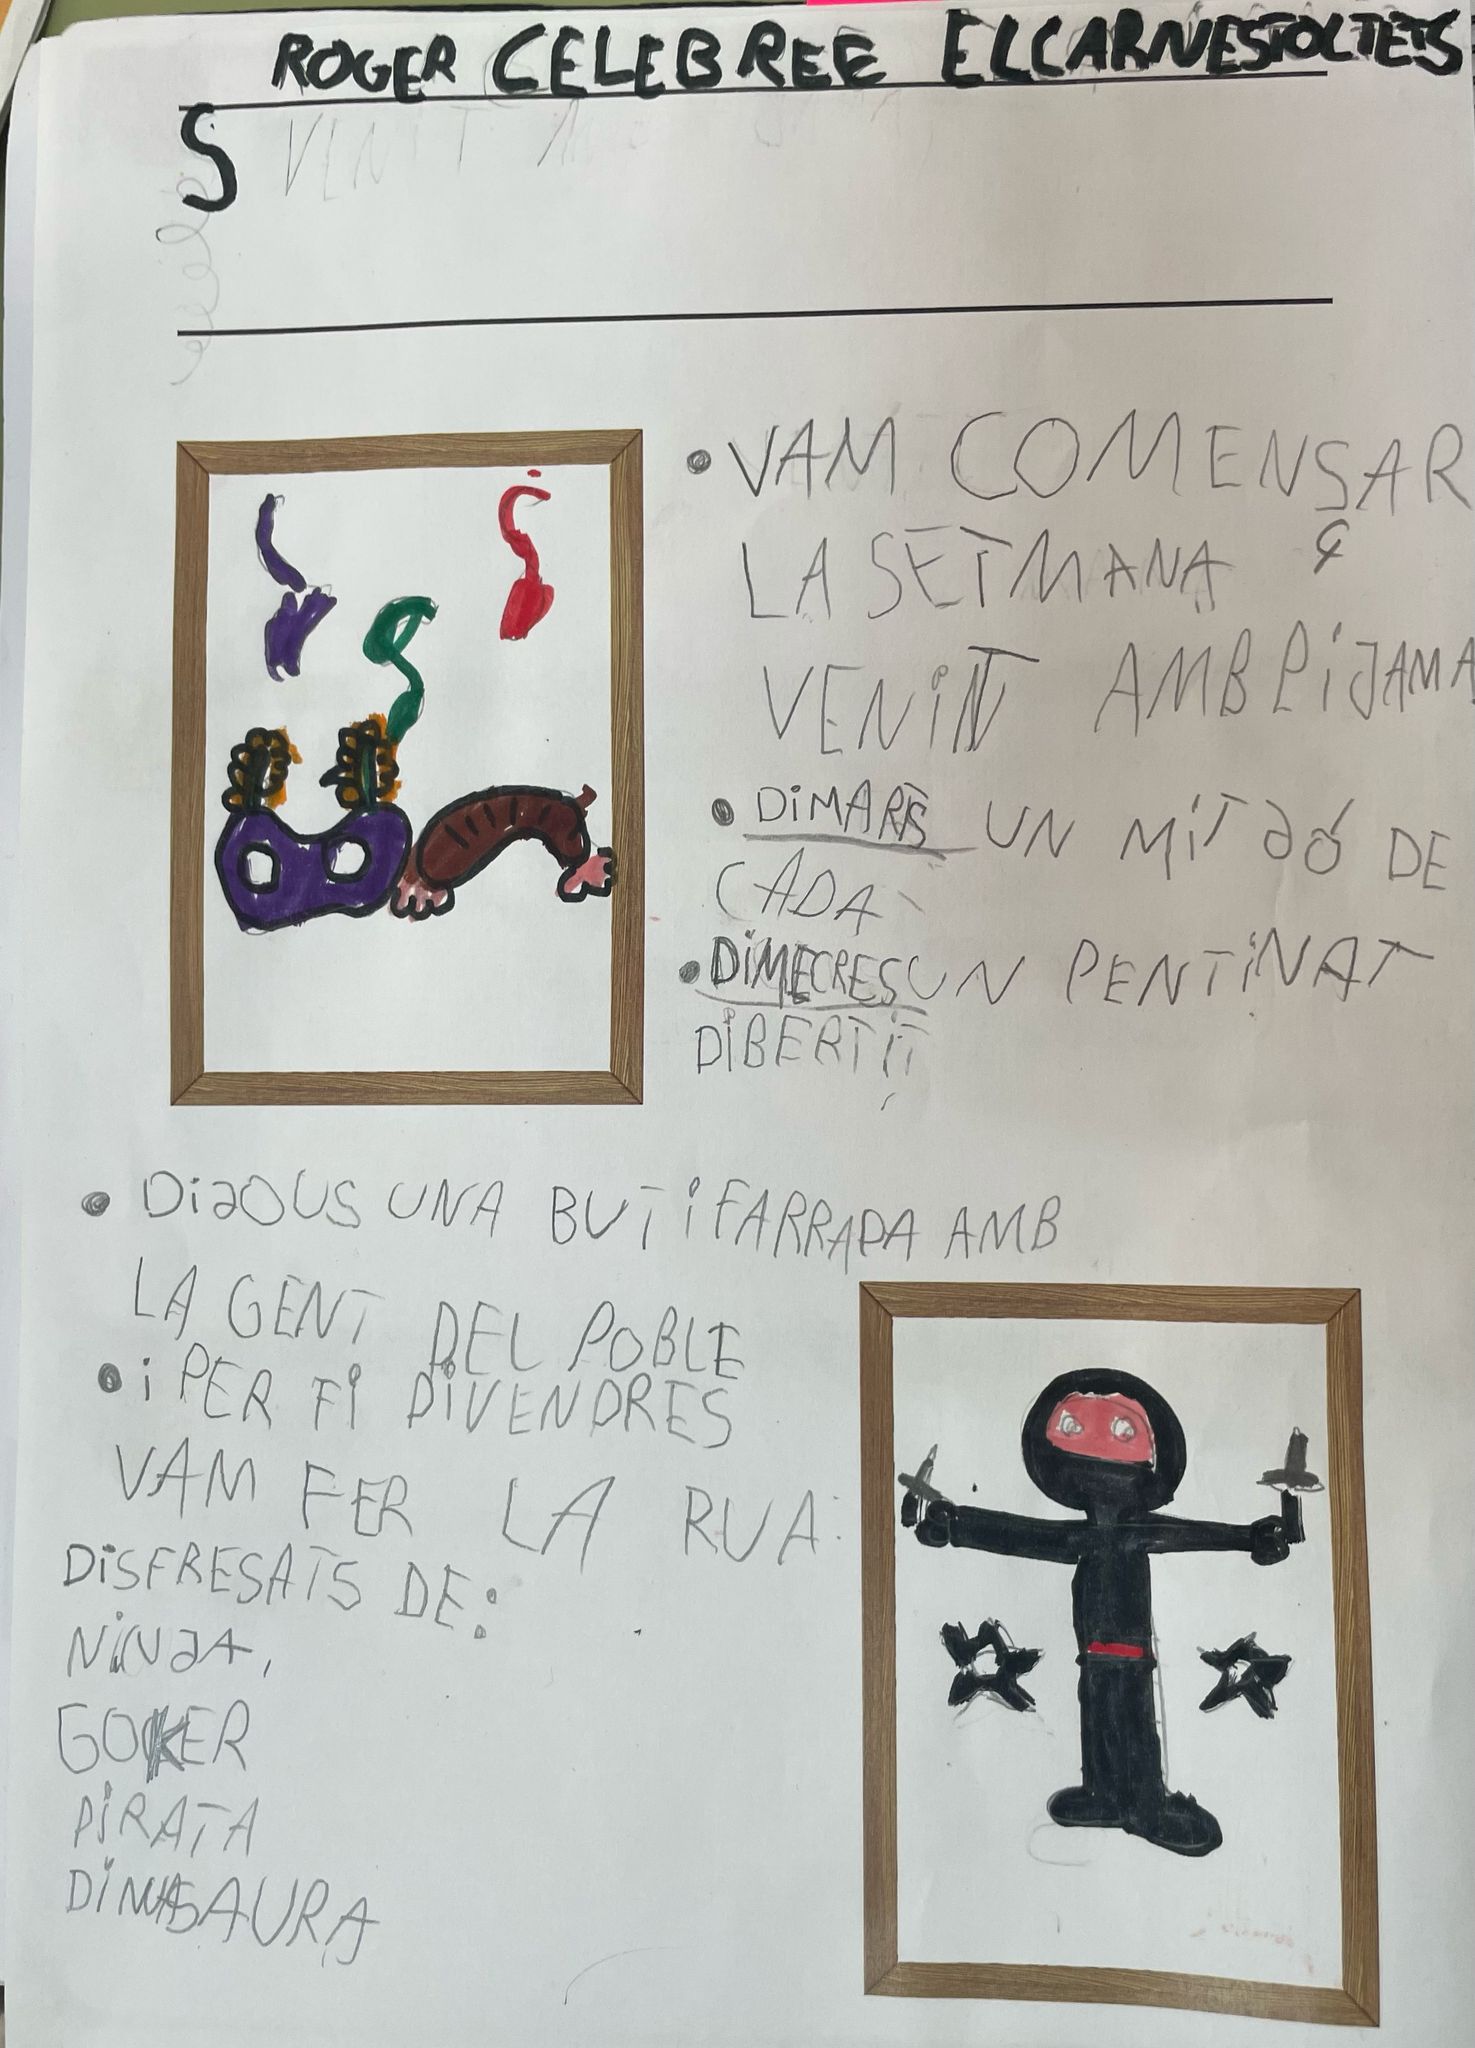 ROGER CELEBREE ELCARNESTOLTETS
S VENIT
• VAM COMENSAR
LA SETMANA Ç
VENINT AMB PIJAMA
• DIMARTS UN MITJÓ DE
CADA
• DIMECRES UN PENTINAT
DIBERTIT
• DIJOUS UNA BUTIFARRADA AMB
LA GENT DEL POBLE
• i PER FI DIVENDRES
VAM FER LA RUA:
DISFRESATS DE:
NINJA,
GOKER
PIRATA
DINASAURA